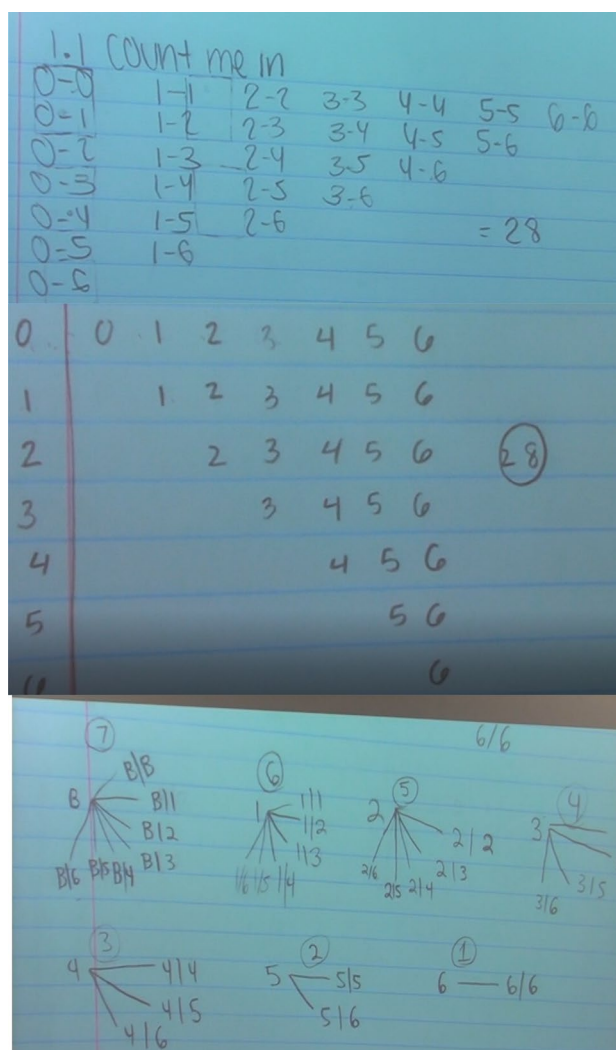 1.1 Count me in
0-0 1-1 2-2 3-3 4-4 5-5 6-6
0-1 1-2 2-3 3-4 4-5 5-6
0-2 1-3 2-4 3-5 4-6
0-3 1-4 2-5 3-6
0-4 1-5 2-6 = 28
0-5 1-6
0-6
0 0 1 2 3 4 5 6
1 1 2 3 4 5 6
2 2 3 4 5 6 28
3 3 4 5 6
4 4 5 6
5 5 6
6
7 6/6
B B|B
B|1
B|2
B|3
B|6 B|5 B|4
6
1 1|1
1|2
1|3
1|6 1|5 1|4
5
2 2|2
2|3
2/6 2|5 2|4
4
3
3|5
3|6
3
4 4|4
4|5
4|6
2
5 5|5
5|6
1
6 6/6